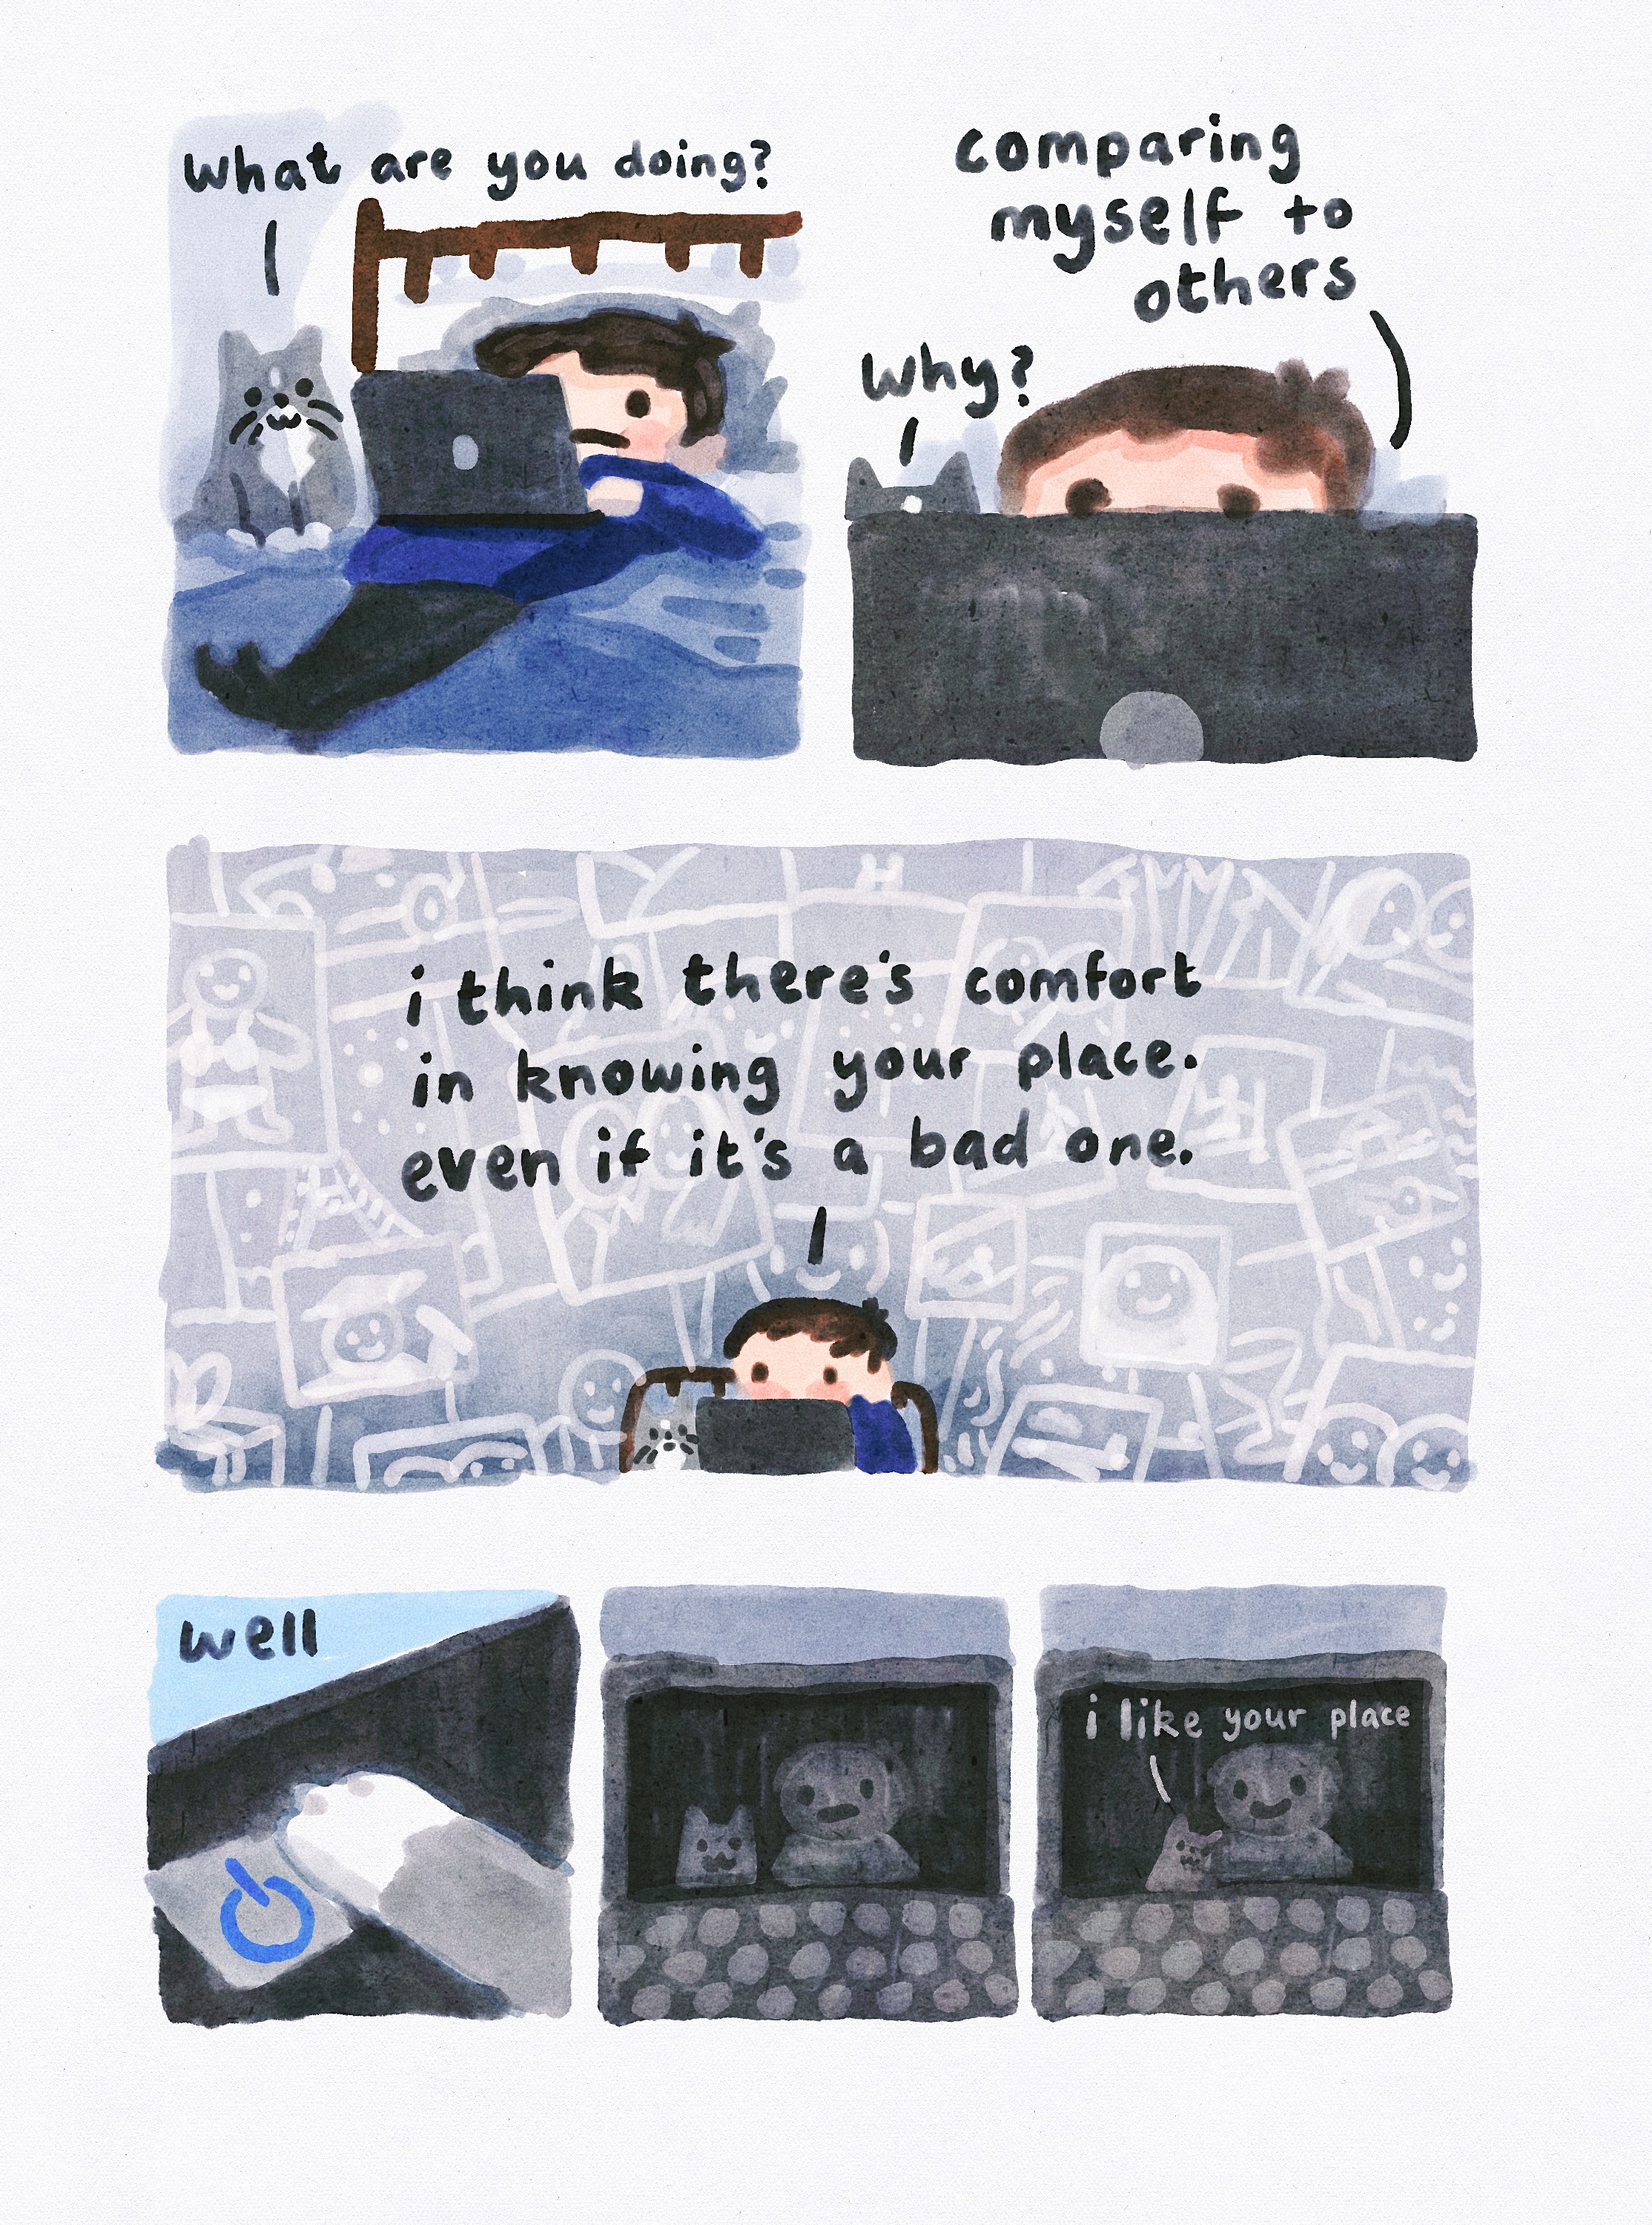 What are you doing?
comparing
myself to
others
Why?
i think there's comfort
in knowing your place.
even if it's a bad one.
well
i like your place